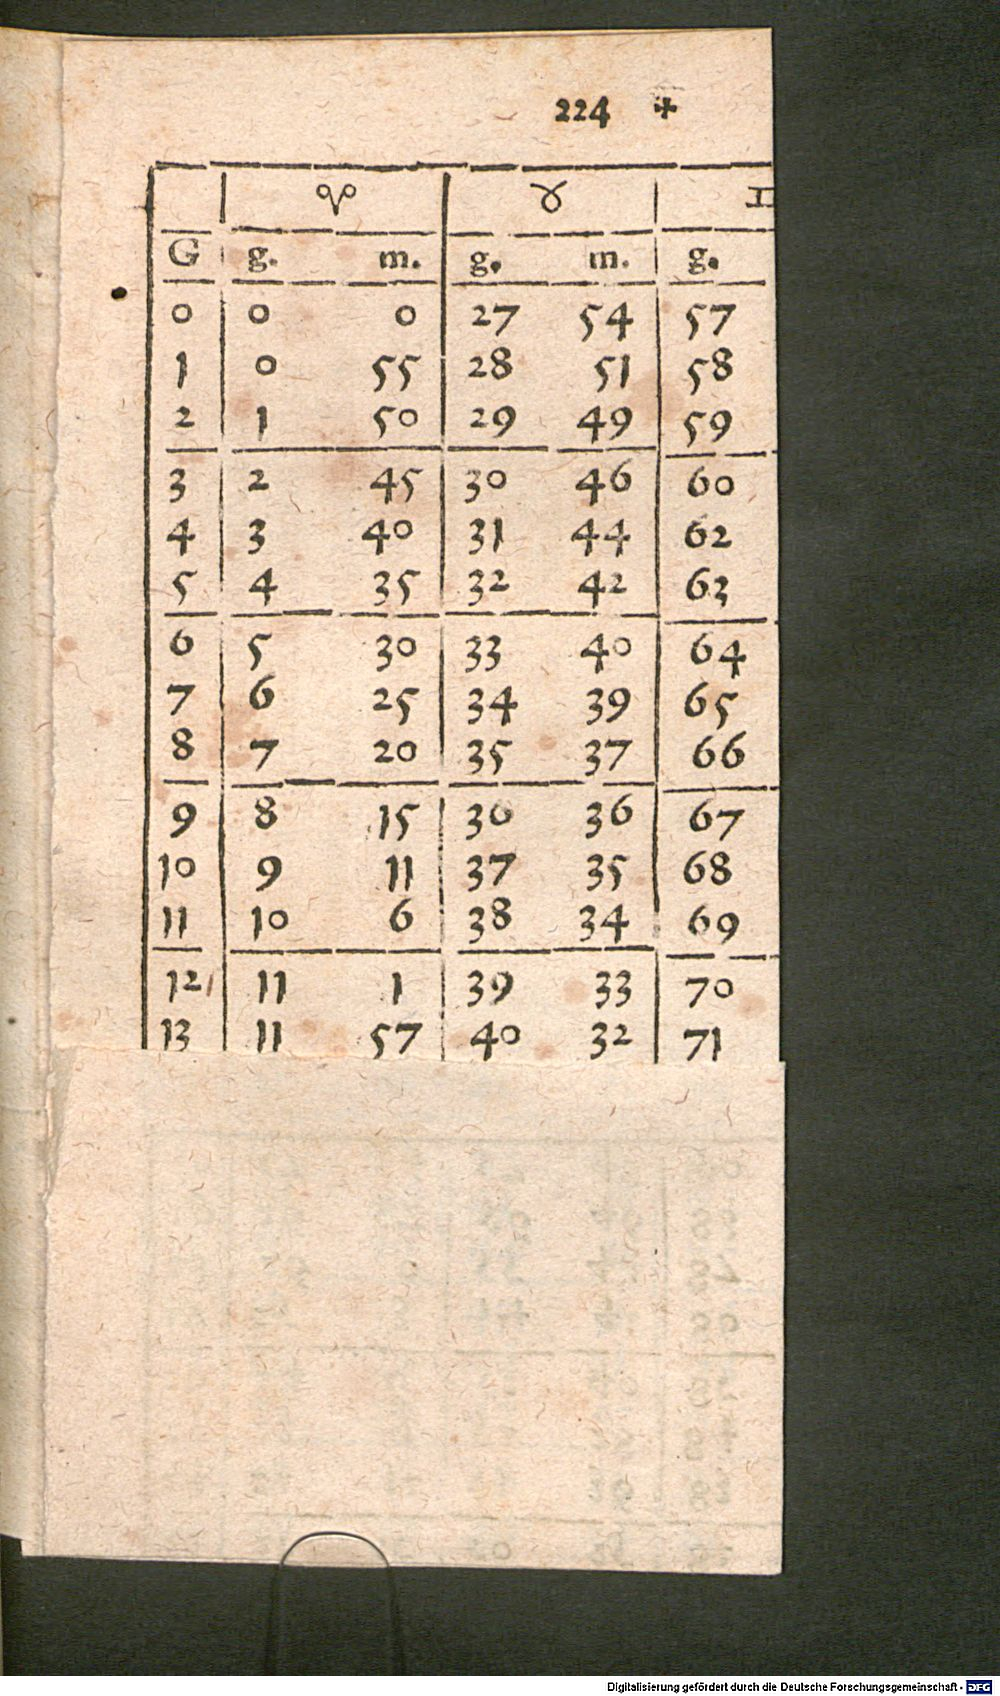 224 ✠
♈ ♉ ♊
G g. m. g. m. g.
0 0 0 27 54 57
1 0 55 28 51 58
2 1 50 29 49 59
3 2 45 30 46 60
4 3 40 31 44 62
5 4 35 32 42 63
6 5 30 33 40 64
7 6 25 34 39 65
8 7 20 35 37 66
9 8 15 36 36 67
10 9 11 37 35 68
11 10 6 38 34 69
12 11 1 39 33 70
13 11 57 40 32 71
Digitalisierung gefördert durch die Deutsche Forschungsgemeinschaft - DFG